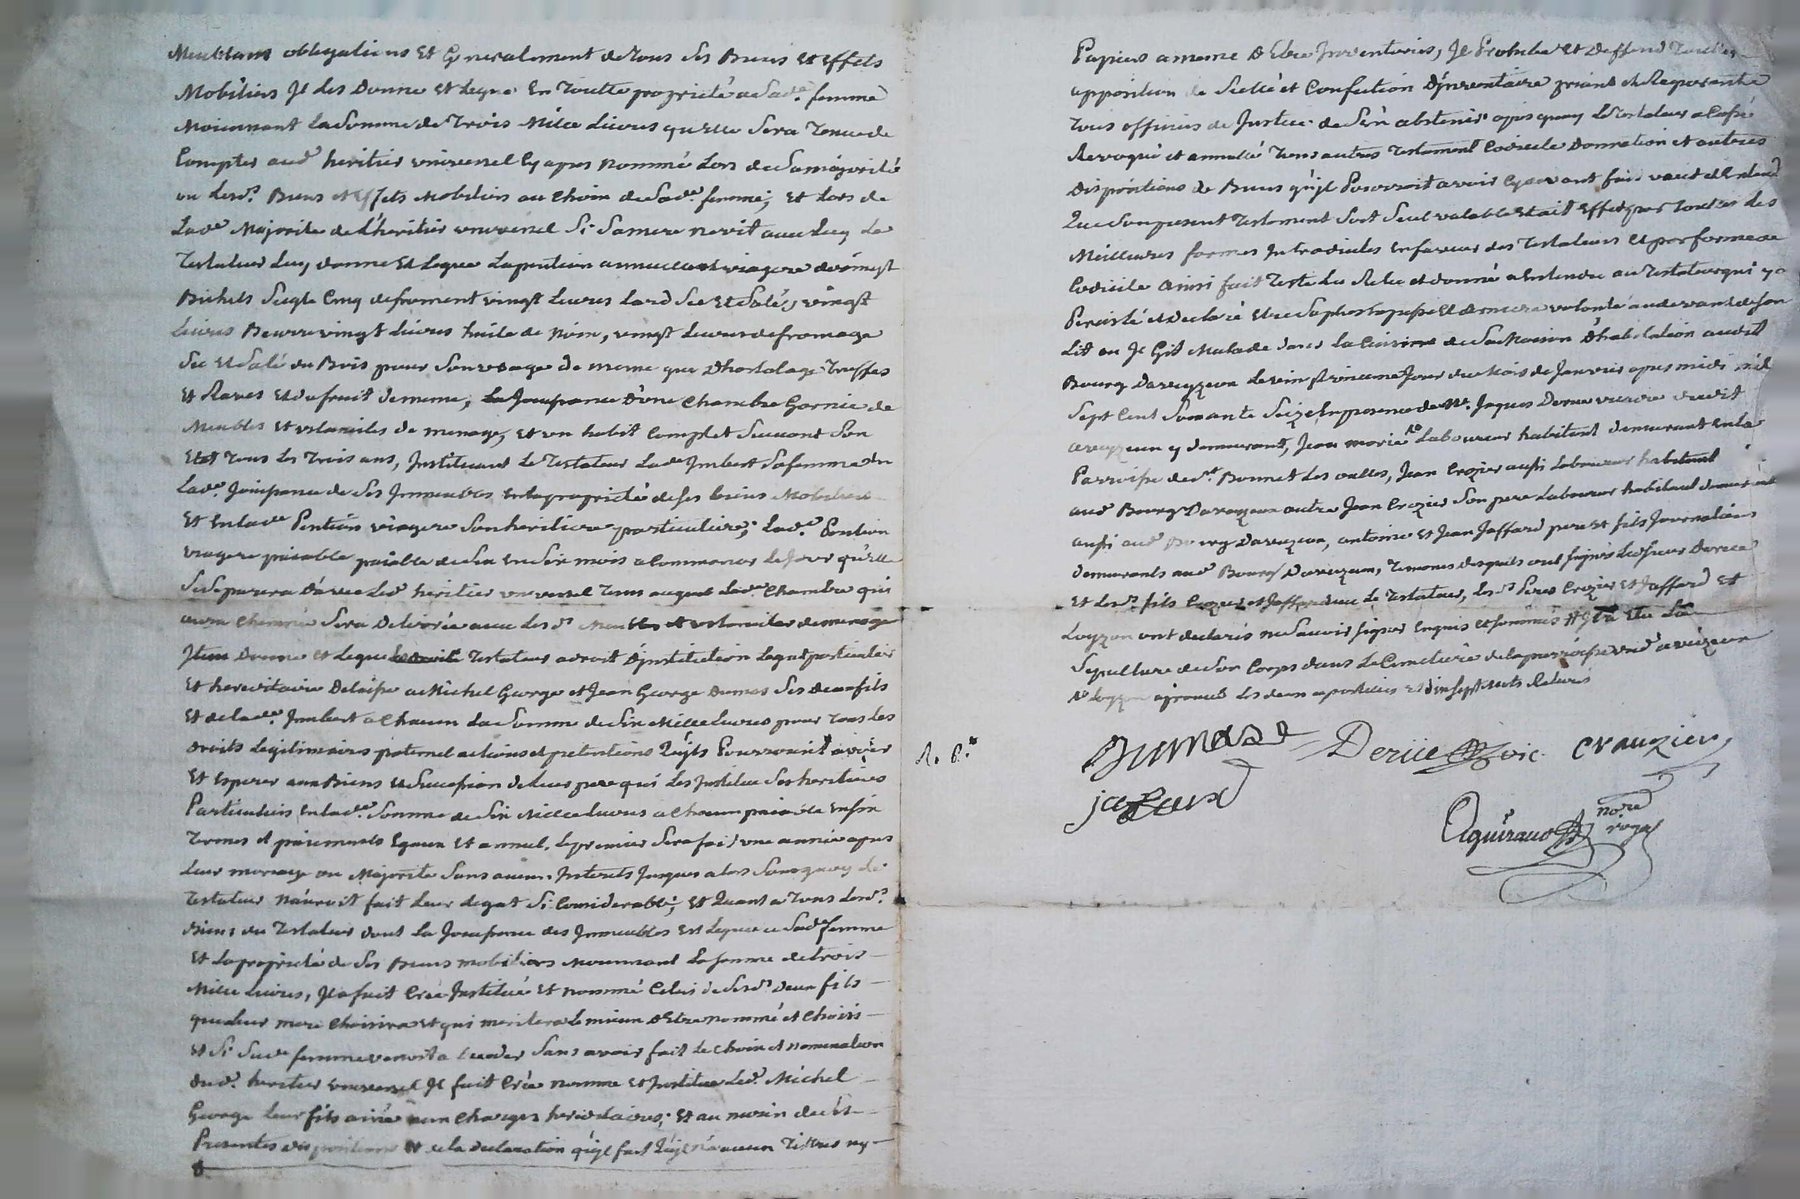 obligations Et Generalement de tous ses Biens et Effets
Mobiliers Jl les Donne et Legue En Toutte propriete a Sad.e femme
Moiennant La Somme de Trois Mille Livres qu'elle Sera Tenue de
Compter aud.t heritier universel Cy apres Nommé Lors de Sa majorité
ou Lesd.s Biens et Effets Mobiliers au Choix de Sad.e femme; Et Lors de
Lad.e Majorite de L'heritier universel Si Sa mere ne vit avec Luy Le
Testateur Luy donne Et Legue La pention annuelle et viagere de
Bichets Seigle Cinq de froment vingt Livres Lard Sec et Salé, vingt
Livres Beurre vingt Livres huile de Noix, vingt Livres de fromage
Sec Et Salé du Bois pour Son usage de meme que D'hortolage Truffes
Et Raves Et du fruit de meme, La Jouissance D'une Chambre Garnie de
Meubles Et ustanciles de menage, et un habit Complet Suivant Son
Etat Tous Les Trois ans, Instituant Le Testateur Lad.e Imbert Sa femme En
Lad.e Jouissance de Ses Immeubles En la proprieté de ses biens Mobiliers
Et En Lad.e Pention viagere Son heritiere particuliere; Lad.e Pention
viagere paiable paiable de Six En Six mois a Commencer Le Jour qu'elle
Se Separera D'avec Led.t heritier universel Tems auquel Lad.e Chambre qui
aura Cheminée Sera Delivrée avec Les d.s Meubles et ustanciles de menage
Item Donne et Legue Testateur a droit D'institution Legat particulier
Et hereditaire Delaisse a Michel George et Jean George Dumas Ses Deux fils
Et de Lad.e Imbert a Chacun La Somme de Six Mille Livres pour Tous Les
droits Legitimaires paternel actions et pretentions Qu'ils Pourroint avoir
Et Esperer aux Biens et Succession de Leur pere qui Les Institue Ses heritiers
Particuliers En Lad.e Somme de Six Mille Livres a Chacun paiable En six
Termes et paiements Egaux Et annuel, Le premier Sera fait une année apres
Leur mariage ou Majorite Sans aucun Interets Jusques a Lors Sans quoy Le
Testateur N'auroit fait Leur Legat Si Considerable; Et Quant a Tous Lesd.s
Biens du Testateur dont La Jouissance des Immeubles Est Leguée a Sad.e femme
Et La proprieté de Ses Biens mobiliers Moiennant La somme de trois
Mille Livres, Jl a fait Créé Institué Et Nommé Celui de Sesd.s Deux fils
que Leur mere Choisira et qui meritera Le mieux D'Etre nommé et Choisi
Et Si Sad.e femme venoit a Deceder Sans avoir fait Le Choix et nomination
dud.t heritier universel Jl fait Crée nomme Et Institue Led.t Michel
George Leur fils ainé aux Charges hereditaires; Et au moien de Ces
Presentes dispositions Et de la Declaration qu'il fait Qu'il n'a aucun Tittres ny
Papiers a meme D'Etre Inventoriés, Jl Prohibe et Deffend Touttes
apposition de Scellé et Confection D'inventaire priant et Requerant
Tous officiers de Justice de S'en abstenir apres quoy Le Testateur a Cassé
Revoqué et annullé Tous autres Testament Codicile Donnation et autres
Dispositions de Biens qu'il Pourroit avoir Cy devant fait veut et Entend
Que Son present Testament Soit Seul valable Et ait Effet par Touttes Les
Meilleures formes Introduites En faveur des Testateurs Et par forme de
Codicile Ainsi fait Testé Lu Relu et donné a Entendre au Testateur qui y a
Persisté et Declaré Etre Sa plus expresse Et derniere volonté au devant de Son
Lit ou Jl Git Malade dans La Cuisine de Sa Maison D'habitation audit
Bourg Dareyzeux Le vingt Jour du Mois de Janvier apres midi mil
Sept Cent Soixante Seize En presence de M.re Jaques Derue vicaire dudit
areyzeux y demeurant, Jean Laboureur habitant demeurant En La
Parroisse de S.t Bonnet Les oulles, Jean Crozier aussi Laboureur habitant
aud.t Bourg Dareyzeux autre Jean Crozier Son pere Laboureur habitant demeurant
aussi aud.t Bourg Dareyzeux, antoine Et Jean Jaffard pere Et fils Journaliers
demeurants aud.t Bourg Dareyzeux, Temoins desquels ont Signés Le Sieur Derue
Et Lesd.s fils Crozier et Jaffard avec Le Testateur, Les d.s Peres Crozier Et Jaffard Et
Loyzon ont declarés ne Savoir Signer Enquis Et Sommés
Sepulture de Son Corps dans Le Cimetiere de la parroisse dud.t areizeux
approuvé Les deux apostilles Et dix Sept Mots Raturés
Dumas Derüe vic. Crauzier
jafard
not.re royal